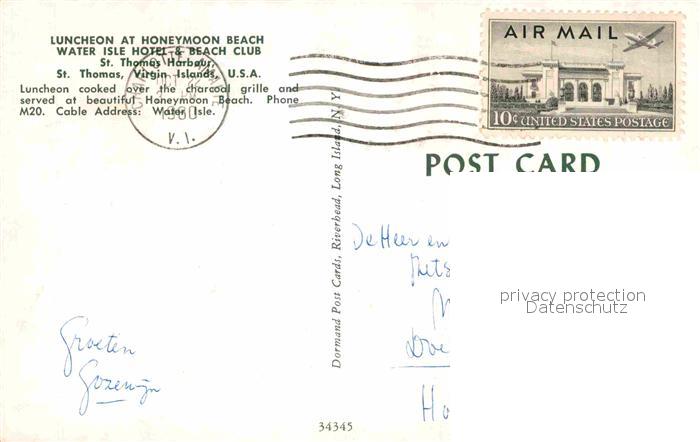 LUNCHEON AT HONEYMOON BEACH
WATER ISLE HOTEL & BEACH CLUB
St. Thomas Harbour,
St. Thomas, Virgin Islands, U.S.A.
Luncheon cooked over the charcoal grille and
served at beautiful Honeymoon Beach. Phone
M20. Cable Address: Water Isle.
1960
V.I.
AIR MAIL
10¢ UNITED STATES POSTAGE
POST CARD
Dormand Post Cards, Riverhead, Long Island, N.Y.
De Heer en
privacy protection
Datenschutz
Groeten
Gozewijn
34345